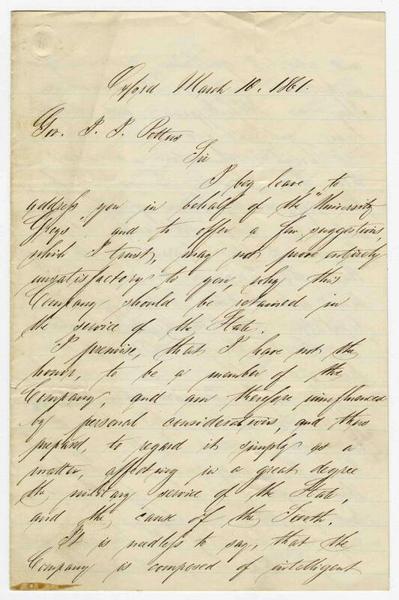 Oxford March 10. 1861.
Gov. J. J. Pettus
Sir
I beg leave to
address you in behalf of the "University
Greys" and to offer a few suggestions,
which I trust, may not prove entirely
unsatisfactory to you, why this
Company should be retained in
the service of the State.
I premise, that I have not the
honor, to be a member of the
Company, and am therefore uninfluenced
by personal considerations, and thus
prepared to regard it simply as a
matter, affecting in a great degree
the military service of the State,
and the cause of the South.
It is needless to say, that the
Company is composed of intelligent